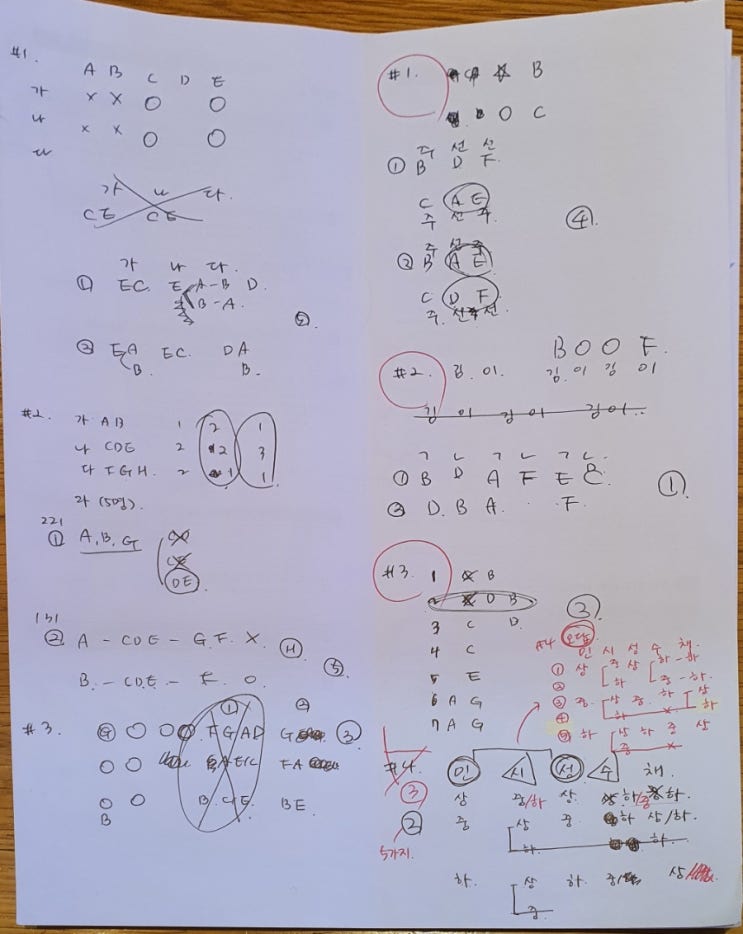 #1.
A B C D E
가 × × ○ ○
나 × × ○ ○
다
가 나 다.
CE CE
가 나 다.
① EC. E A-B D.
B-A.
⑤.
② EA EC. DA
B. B.
#2. 가 AB 1 2 1
나 CDE 2 2 3
다 FGH. 2 1 1
라 (50명).
221
① A, B, G
DE
131
② A - CDE - G.F. X. H
B. - CDE - F. O. ⑤.
① ②
#3. G ○ ○ ○ F G A D G ③
○ ○ B A E C F A
○ ○ B C E. B E
B
#1. B
○ C
주 선 선
① B D F
C A E
주 선 주 ④
주 선 주
② B A E
C D F
주. 선 선
B O O F.
#2. 김. 이. 김. 이 김 이
김 이 김 이 김 이..
ㄱ ㄴ ㄱ ㄴ ㄱ ㄴ.
① B D A F E C. ①
② D. B A. F.
#3. 1 B
2 D B ③
3 C D.
4 C
5 E
6 A G
7 A G
#4 오답
인 시 성 수 채.
① 상 중 상 하-하
② 하 중-하.
③ 중. 상 중. 하 상
④ 하 × 하
⑤ 하 상 하 중 상
중 ×
#4. 인 시 성 수 채.
③ 상 중/하 상. 하/중 하.
② 중 상 중 하 상/하.
5가지. 하. 하.
하. 상 하 중 상
중.